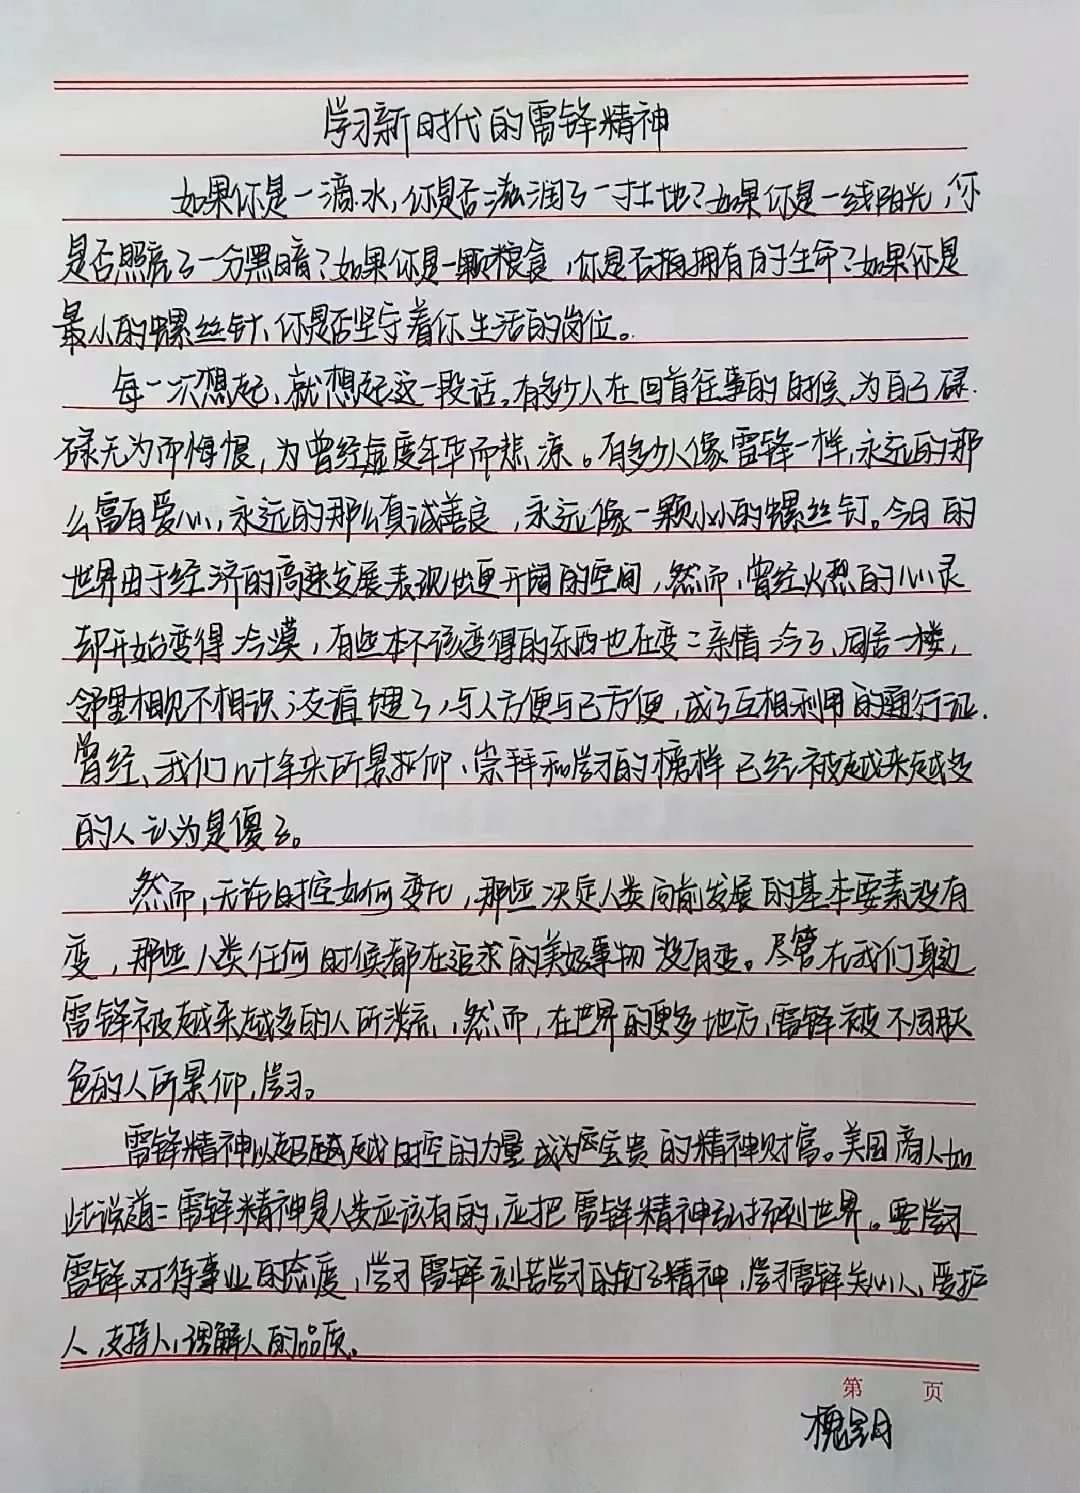 学习新时代的雷锋精神
如果你是一滴水,你是否滋润了一寸土地?如果你是一线阳光,你
是否照亮了一分黑暗?如果你是一颗粮食,你是否拥有有于生命?如果你是
最小的螺丝钉、你是否坚守着你生活的岗位。
每一次想起、就想起这一段话。有多少人在回首往事的时候,为自己碌
碌无为而悔恨,为曾经虚度年华而悲凉。有多少人像雷锋一样,永远的那
么富有爱心,永远的那么真诚善良,永远像一颗小小的螺丝钉。今日的
世界由于经济的高速发展表现出更开阔的空间,然而,曾经火烈的心灵
却开始变得冷漠,有些本不该变得的东西也在变:亲情冷了、同居一楼,
邻里相见不相识;友谊埋了,与人方便与己方便,成了互相利用的通行证.
曾经、我们几十年来所景仰、崇拜和学习的榜样已经被越来越多
的人认为是傻子。
然而,无论时空如何变化,那些决定人类向前发展的基本要素没有
变,那些人类任何时候都在追求的美好事物没有变。尽管在我们身边
雷锋被越来越多的人所淡忘,然而,在世界的更多地方,雷锋被不同肤
色的人所景仰,学习。
雷锋精神以超越越时空的力量成为宝贵的精神财富。美国商人如
此说道:雷锋精神是人类应该有的,应把雷锋精神弘扬到世界。要学习
雷锋对待事业的态度,学习雷锋刻苦学习的钉子精神,学习雷锋关心人、爱护
人,支持人,理解人的品质。
第 页